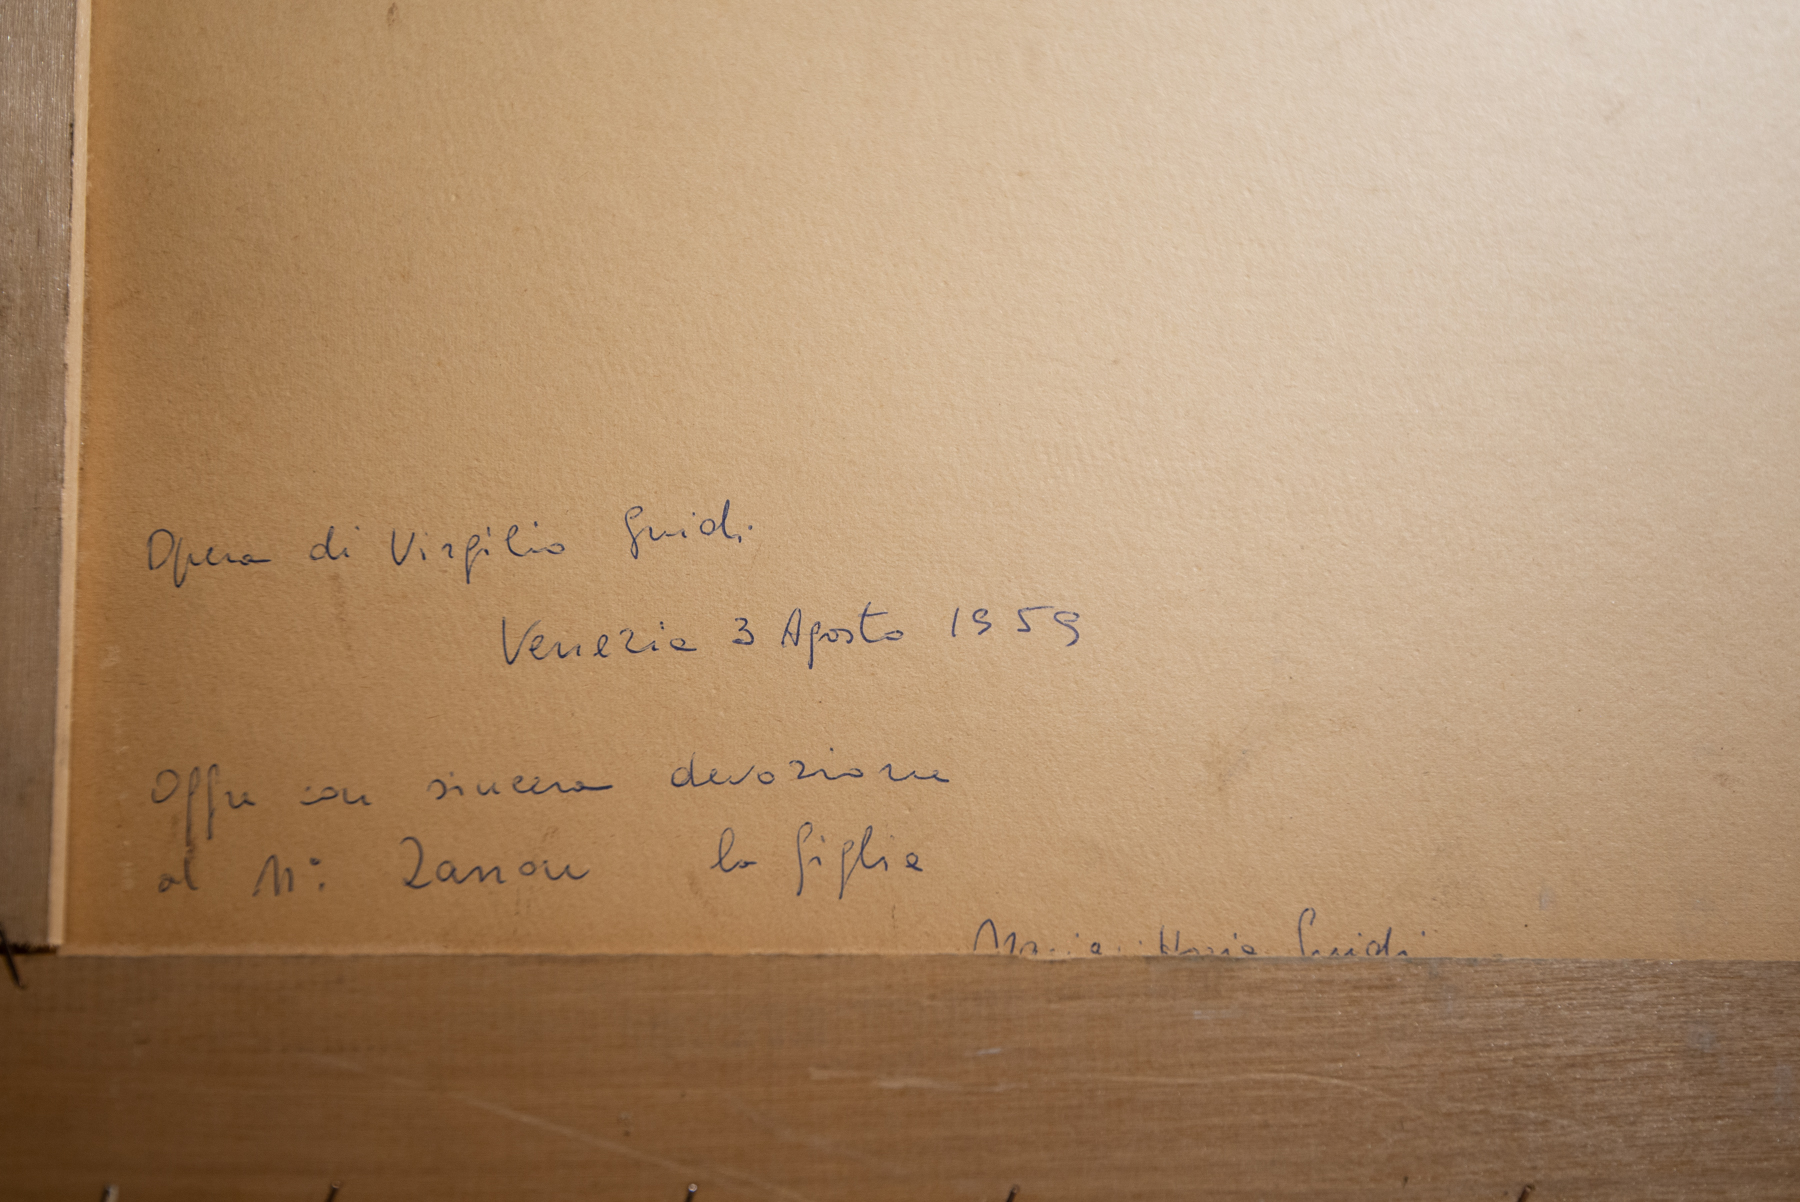 Opera di Virgilio Guidi
Venezia 3 Agosto 1959
Offre con sincera devozione
al M° Zanon la figlia
Maria Guidi